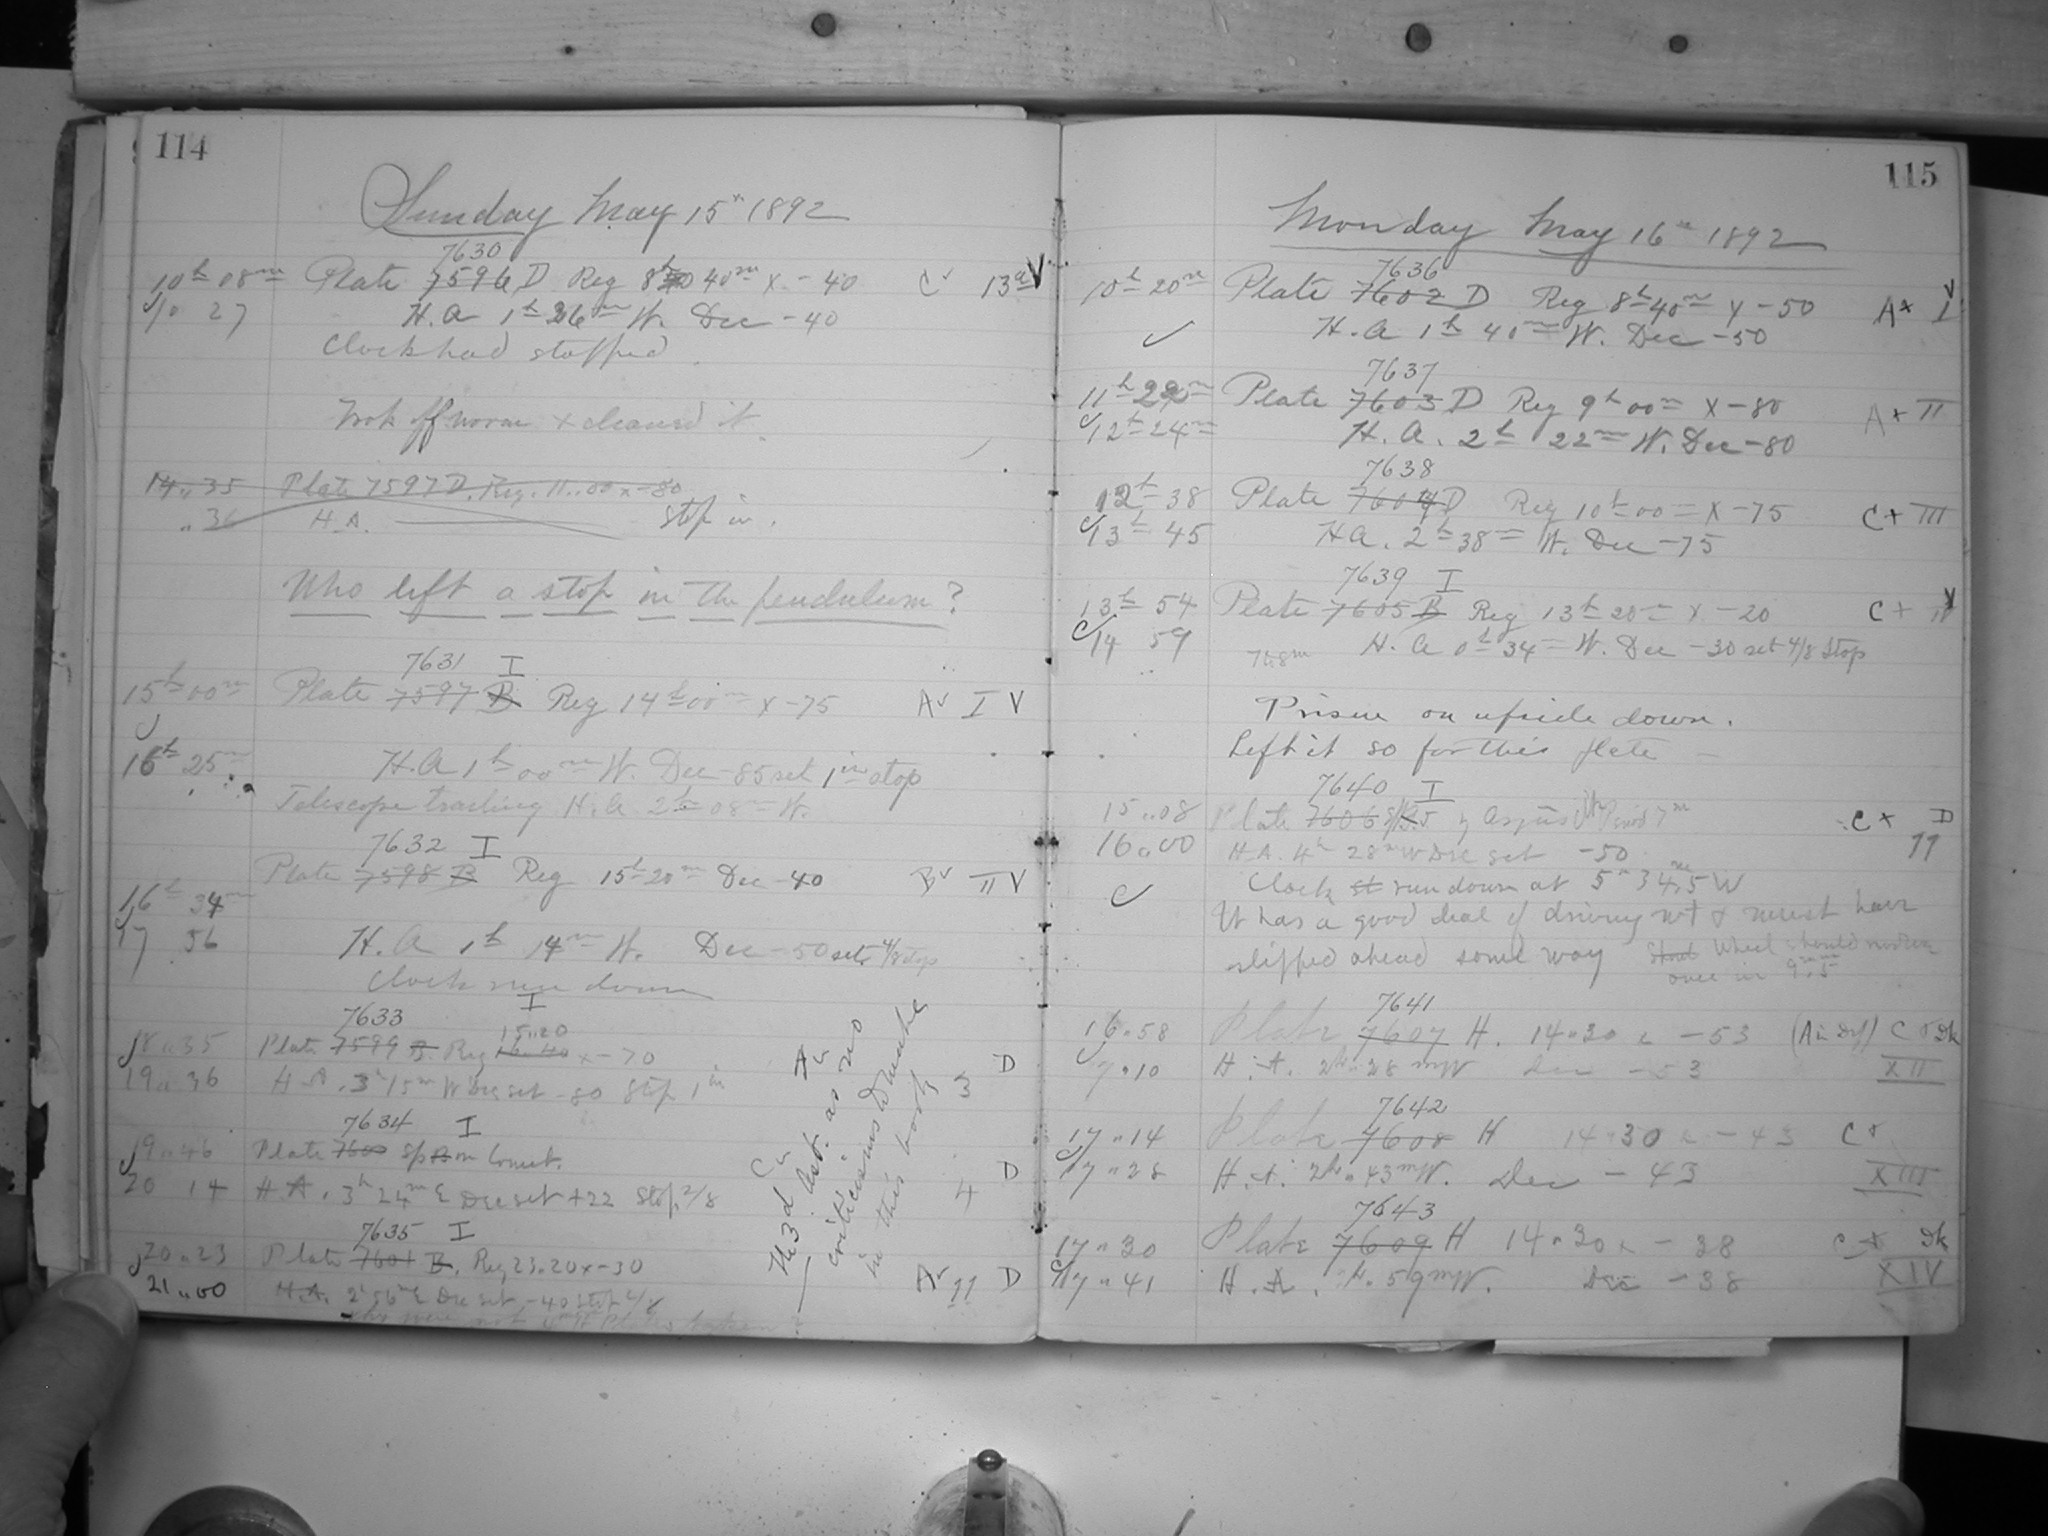 114
Sunday May 15th 1892
7630
10h 08m Plate 7596 D Reg 8h 40m x -40 C 13
10 27 H.A 1h 26m W. Dec -40
Clock had stopped.
Took off worm & cleaned it.
14 35 Plate 7597 D. Reg. 11 00 x -80
36 H.A. Stop in.
Who left a stop in the pendulum?
7631 I
15h 00m Plate 7597 B Reg 14h 00m x -75 A I V
16h 25m H.A 1h 00m W. Dec -85 set 1in stop
Telescope tracking H.A. 2h 08m W.
7632 I
Plate 7598 B Reg 15h 20m Dec -40 B II V
16h 34m
17 56 H.A 1h 14m W. Dec -50 set 4/8 stop
Clock run down
I
7633 15 20
18 35 Plate 7599 B. Reg 16 40 x -70 A D
19 36 H.A. 3h 15m W Dec set -80 Stop 1in 3
7634 I
19 46 Plate 7600 Sp B on Comet. C D
20 14 H.A. 3h 24m E Dec set +22 Stop 2/8 4
7635 I
20 23 Plate 7601 B. Reg 23 20 x -30
21 00 H.A. 2h 56m E Dec set -40 Stop A 11 D
The 3d Ast. as no
criticisms to make
in this book
115
Monday May 16th 1892
7636
10h 20m Plate 7602 D Reg 8h 40m x -50 A+ I
H.A 1h 40m W. Dec -50
7637
11h 22m Plate 7603 D Reg 9h 00m x -80 A+ II
12h 24m H.A. 2h 22m W. Dec -80
7638
12h 38 Plate 7604 D Reg 10h 00m x -75 C+ III
13h 45 H.A. 2h 38m W. Dec -75
7639 I
13h 54 Plate 7605 B Reg 13h 20m x -20 C+
14 59 H.A 0h 34m W. Dec -30 set 4/8 Stop
Prism on upside down.
Left it so for this plate
7640 I
15 08 Plate 7606 C+ D
16 00 H.A. 4h 28m W Dec set -50 11
Clock st run down at 5h 34m.5 W
It has a good deal of driving wt & must have
slipped ahead some way Wheel should
once in 9m.5
7641
16 58 Plate 7607 H. 14 30 x -53 C
17 10 H.A. 2h 28m W Dec -53 XII
7642
17 14 Plate 7608 H 14 30 x -43 C
17 28 H.A. 2h 43m W. Dec -43 XIII
7643
17 30 Plate 7609 H 14 30 x -38 C
17 41 H.A. 2h 59m W. Dec -38 XIV